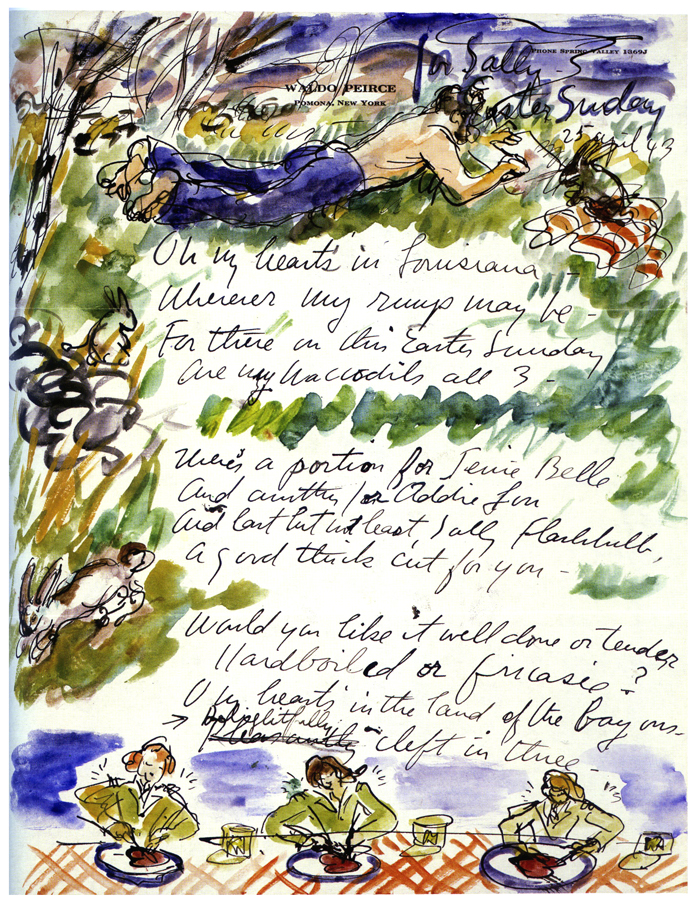 PHONE SPRING VALLEY 1869J
WALDO PEIRCE
POMONA, NEW YORK
for Sally -
Easter Sunday
25 april 43
Oh my hearts in Louisiana -
Wherever my rump may be -
For there on this Easter Sunday
Are my all 3 -
There's a portion for Jennie Belle
And another for Addie Lou
And last but not least, Sally Flashbulb,
A good thick cut for you -
Would you like it well done or tender
Hardboiled or fricasie - ?
O my hearts in the land of the bayous -
→ Delightfully
cleft in three -